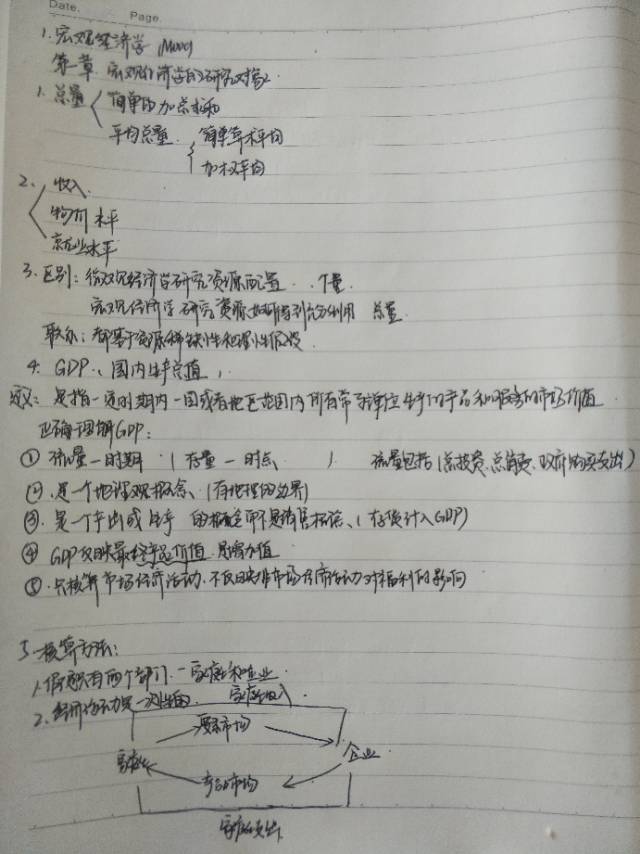 Date.     Page.
1. 宏观经济学 (Mooc)
第一章 宏观经济学的研究对象
1. 总量 简单的加总求和
平均总量 简单算术平均
加权平均
2. 收入
物价水平
就业水平
3. 区别: 微观经济学研究资源配置 个量
宏观经济学研究资源如何得到充分利用 总量
联系: 都基于资源稀缺性和理性假设
4. GDP (国内生产总值)
定义: 是指一定时期内一国或者地区范围内所有常驻单位生产的产品和服务的市场价值
正确理解GDP:
① 流量—时期 (存量—时点) 流量包括(总投资、总消费、政府购买支出)
② 是一个地理观概念、(有地理的边界)
③ 是一个产出或生产的概念而不是销售概念、(存货计入GDP)
④ GDP仅反映最终产品价值 是增加值
⑤ 只核算市场经济活动、不反映非市场经济活动对福利的影响
5. 核算方法:
1. 假设只有两个部门—家庭和企业
2. 经济活动是一次性的 家庭收入
要素市场
家庭 企业
产品市场
家庭支出